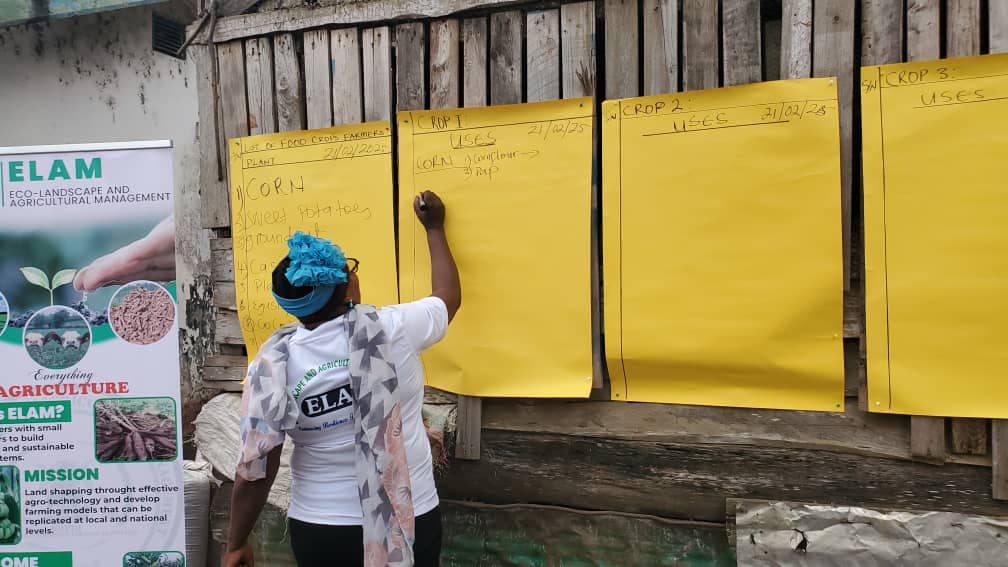 ELAM
ECO-LANDSCAPE AND
AGRICULTURAL MANAGEMENT
Everything
AGRICULTURE
ELAM?
ers with small
rs to build
and sustainable
tems.
MISSION
Land shapping throught effective
agro-technology and develop
farming models that can be
replicated at local and national
levels.
OME
LIST OF FOOD CROPS FARMERS
PLANT 21/02/2025
1) CORN
Sweet Potatoes
3
4) Cas
5
6
CROP 1:
USES 21/02/25
CORN 1) Cornflour
2) Pap
S/N CROP 2:
USES 21/02/25
S/N CROP 3:
USES
APE AND AGRICULTU
ELA